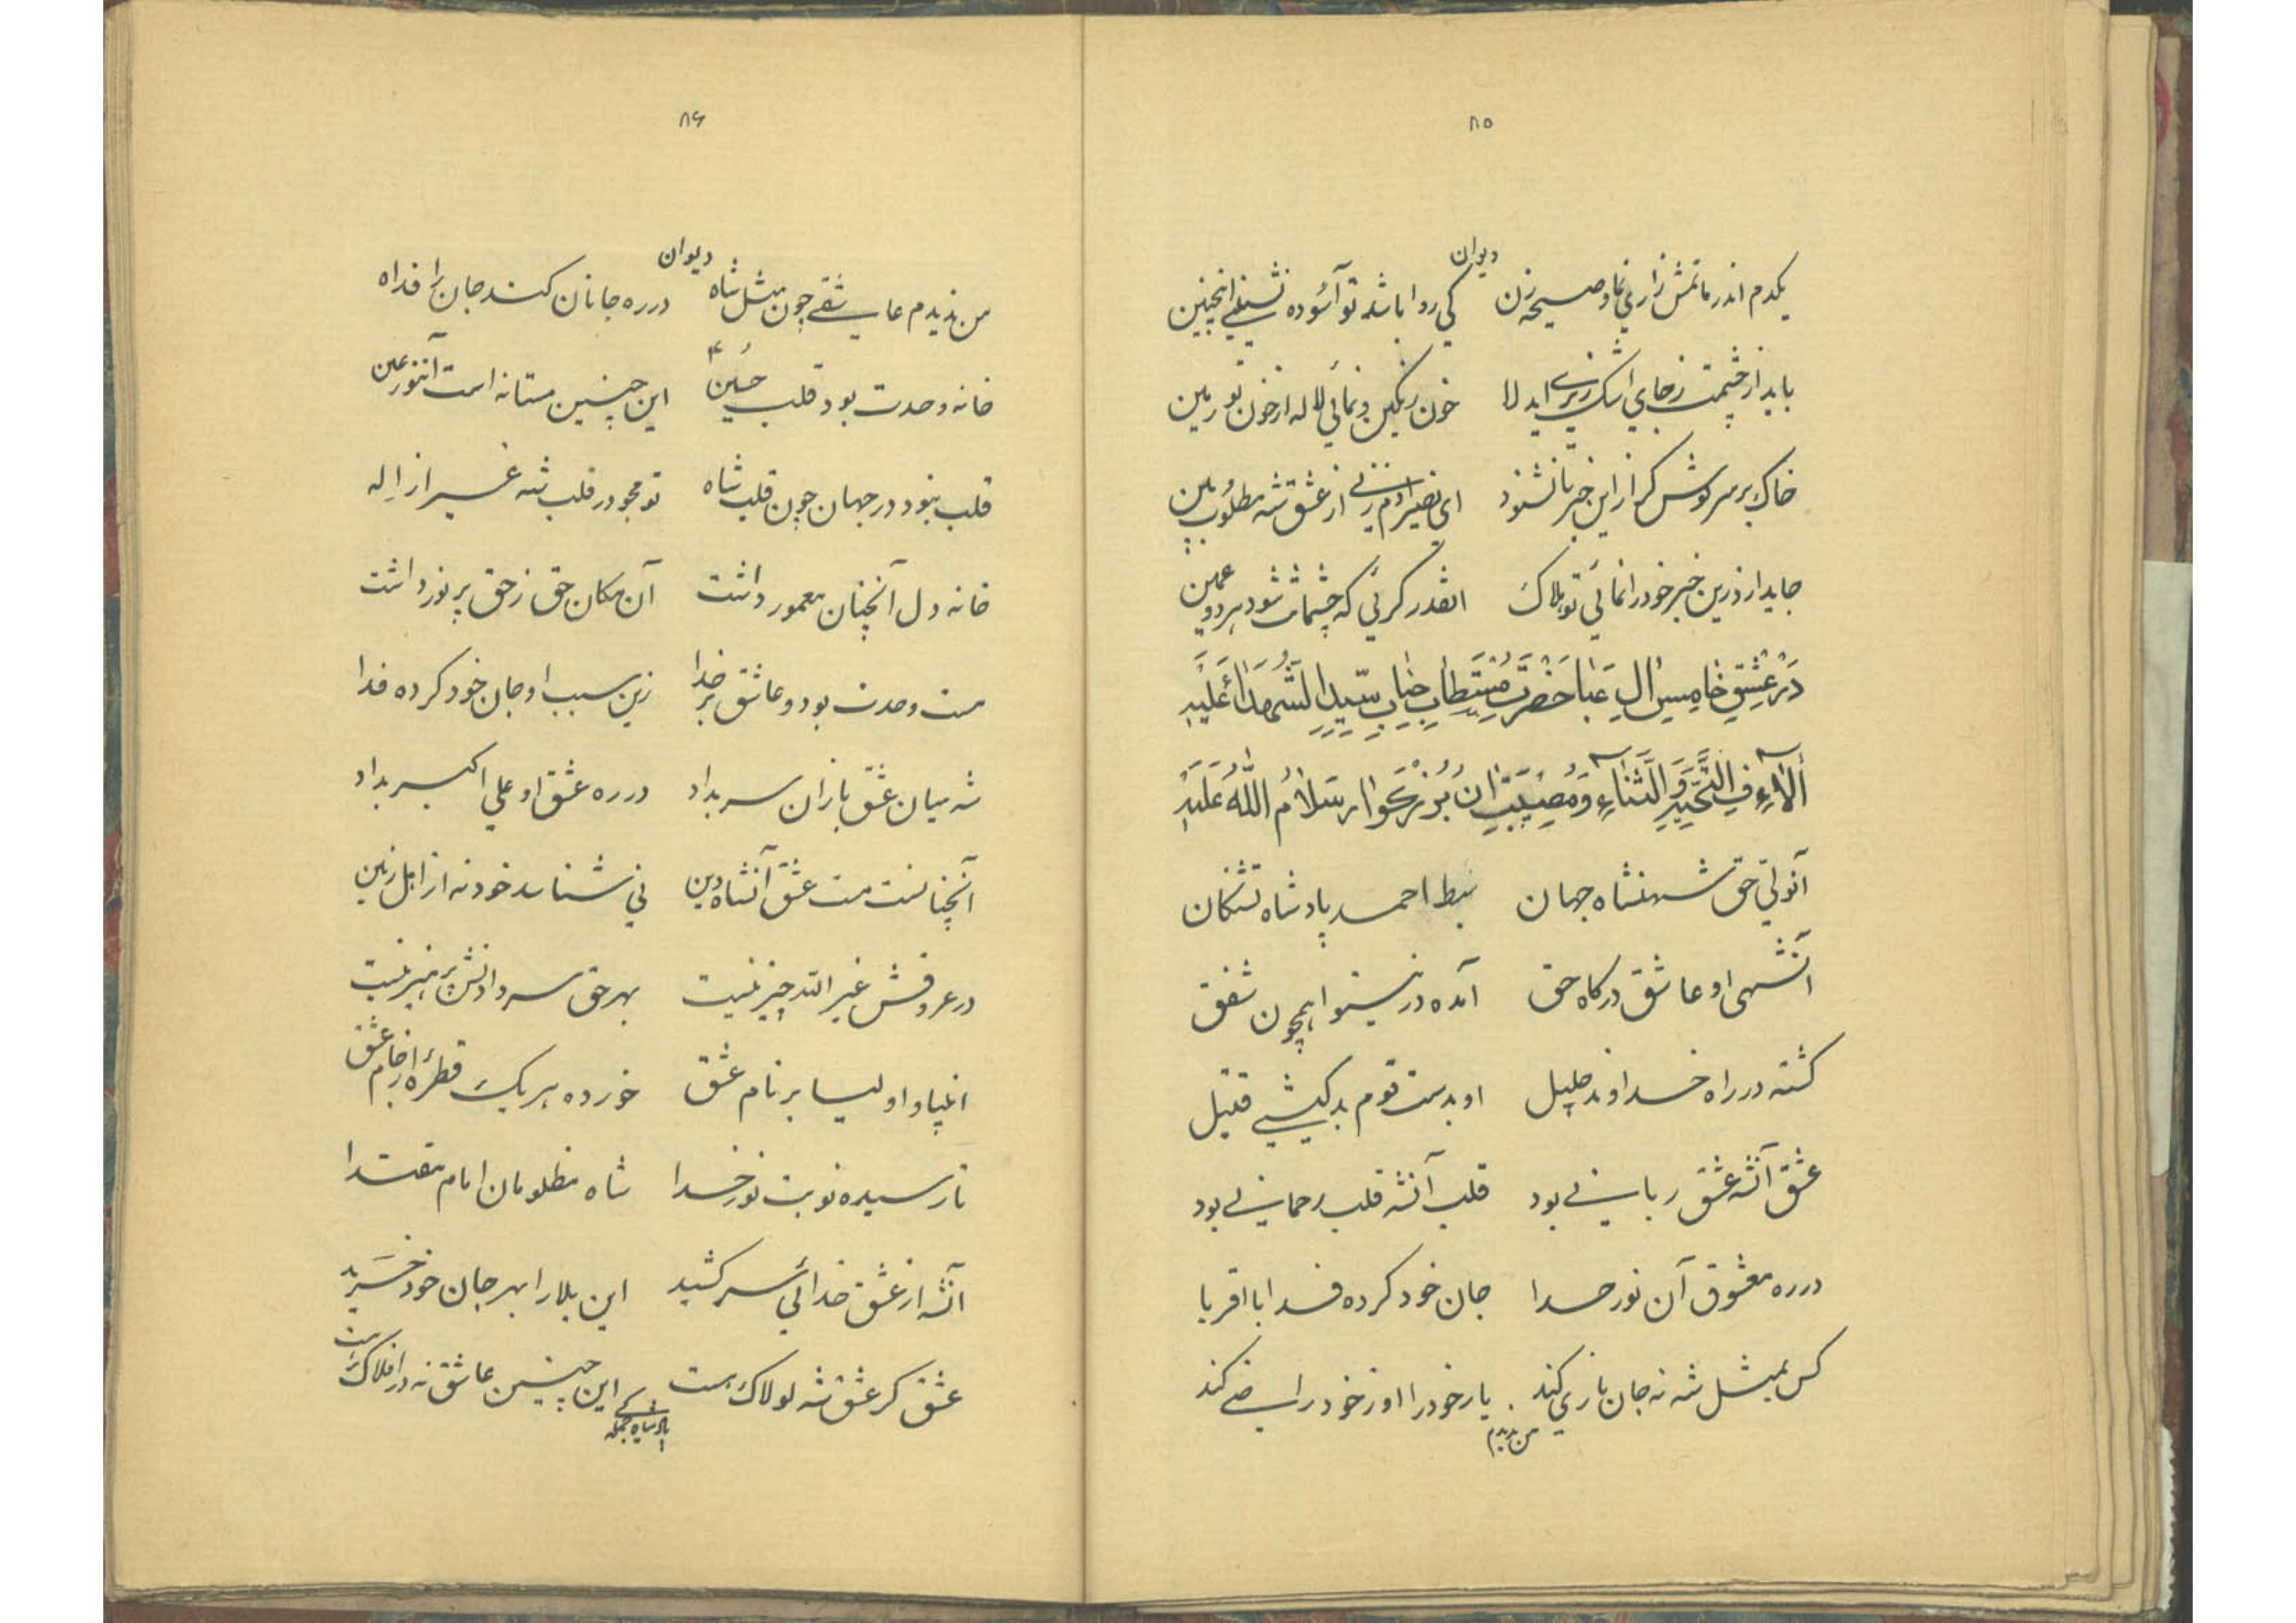 ۸۵
دیوان
یکدم اندر ماتمش زاری نما و صیحه زن کی روا باشد تو آسوده نشینی اینچنین
باید از چشمت بجای اشک ریزی ایدلا خون رنگین و نمائی لاله از خون تو زمین
خاک بر سر گوش گر از این خبرها نشنود ای نصیر ادم زنی از عشق شه مطلوب بین
جایدارد زین خبر خود را نمائی تو هلاک انقدر گرئی که چشمانت شود هر دو عمین
در عشق خامس ال عبا حضرت مستطاب جناب سید الشهداء علیه
آلاف التحیه و الثناء و مصیبت ان بزرگوار سلام الله علیه
آنولی حق شهنشاه جهان سبط احمد پادشاه تشنگان
آنشهی او عاشق درگاه حق آمده در نینوا همچون شفق
کشته در راه خداوند جلیل او بدست قوم بدکیشی قتیل
عشق آنشه عشق ربانی بود قلب آنشه قلب رحمانی بود
در ره معشوق آن نور خدا جان خود کرده فدا با اقربا
کس بمثل شه نه جان بازی کند یار خود را او ز خود راضی کند
من ندیدم
۸۶
دیوان
من ندیدم عاشقی چون مثل شاه در ره جانان کند جان را فداه
خانه وحدت بود قلب حسین ع این چنین مستانه است آننور عین
قلب نبود در جهان چون قلب شاه تو مجو در قلب شه غیر از اله
خانه دل آنچنان معمور داشت آن مکان حق ز حق پر نور داشت
مست وحدت بود و عاشق بر خدا زین سبب او جان خود کرده فدا
شه میان عشق بازان سر بداد در ره عشق او علی اکبر بداد
آنچنانست مست عشق آنشاه دین نی شناسد خود نه از اهل زمین
در عروقش غیر الله چیز نیست بهر حق سر دادنش پرهیز نیست
انبیا و اولیا بر نام عشق خورده هر یک قطرهٔ از جام عشق
تا رسیده نوبت نور خدا شاه مظلومان امام مقتدا
آنشه از عشق خدائی سر کشید این بلا را بهر جان خود خرید
عشق گر عشق شه لولاک هست این چنین عاشق نه در افلاک هست
پادشاه جمله